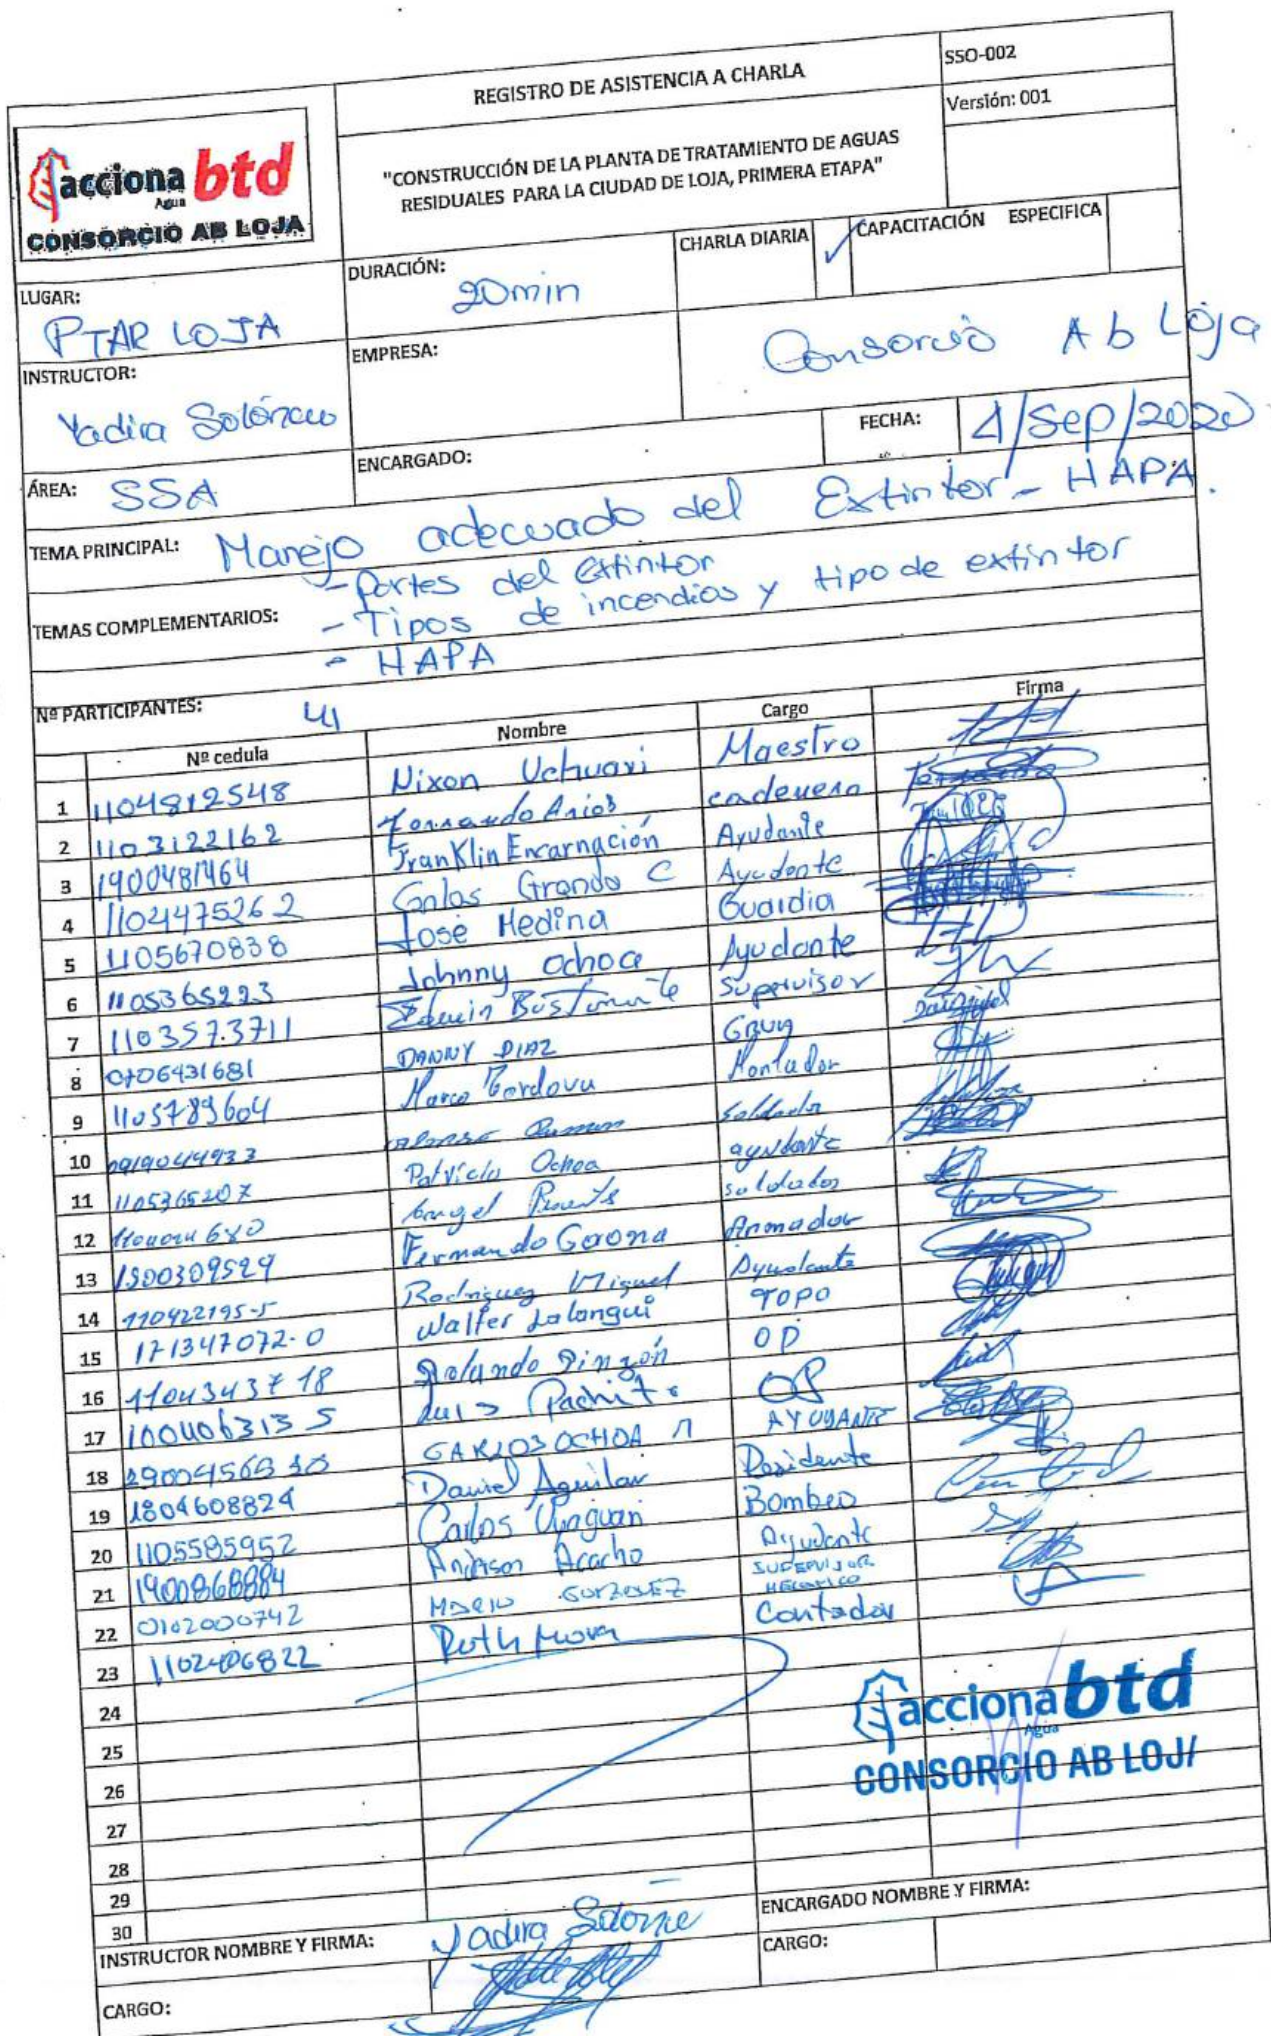 REGISTRO DE ASISTENCIA A CHARLA
SSO-002
Versión: 001
acciona btd
Agua
CONSORCIO AB LOJA
"CONSTRUCCIÓN DE LA PLANTA DE TRATAMIENTO DE AGUAS
RESIDUALES PARA LA CIUDAD DE LOJA, PRIMERA ETAPA"
LUGAR:
PTAR LOJA
DURACIÓN:
20min
CHARLA DIARIA ✓
CAPACITACIÓN ESPECIFICA
INSTRUCTOR:
Yadira
EMPRESA:
Consorcio Ab Loja
ÁREA: SSA
ENCARGADO:
FECHA: 4/Sep/2020
TEMA PRINCIPAL: Manejo adecuado del Extintor - HAPA.
TEMAS COMPLEMENTARIOS:
- Partes del Extintor
- Tipos de incendios y tipo de extintor
- HAPA
Nº PARTICIPANTES: 41
Nº cedula Nombre Cargo Firma
1 1104812548 Nixon Uchuari Maestro
2 1103122162 Fernando Arios cadenero
3 1900481464 Franklin Encarnación Ayudante
4 1102447526 2 Galos Granda C Ayudante
5 1105670838 José Medina Guardia
6 1105365223 Johnny Ochoa Ayudante
7 110357.3711 Edwin Bustamante Supervisor
8 0706431681 DANNY DIAZ
9 1105789604 Marco Cordova Montador
10 0919044933 Soldador
11 1105365207 Patricio Ochoa ayudante
12 Angel soldador
13 1900309529 Fernando Gaona Armador
14 110422195-5 Rodriguez Miguel Ayudante
15 171347072-0 Walter Lalangui TOPO
16 1104343718 Rolando Pinzón OP
17 1004063135 Luis OP
18 CARLOS OCHOA AYUDANTE
19 1804608824 Daniel Aguilar Residente
20 1105585952 Carlos Bombeo
21 1900868884 Anderson Acacho Ayudante
22 0102000742 MARIO GONZALEZ SUPERVISOR MECANICO
23 1102406822 Ruth Mora Contador
24
25
26
27
28
29
30
acciona btd
Agua
CONSORCIO AB LOJ
INSTRUCTOR NOMBRE Y FIRMA: Yadira
ENCARGADO NOMBRE Y FIRMA:
CARGO:
CARGO: